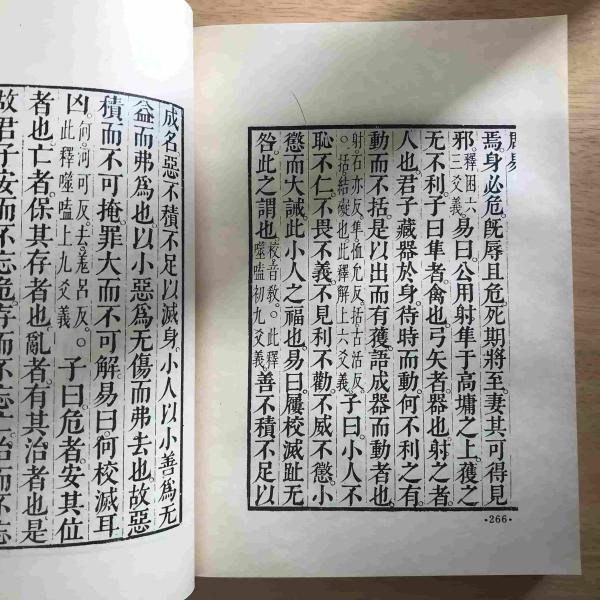 周易
焉。身必危。旣辱且危。死期將至。妻其可得見
邪。釋困六三爻義 易曰。公用射隼于高墉之上。獲之
无不利。子曰。隼者。禽也。弓矢者。器也。射之者。
人也。君子藏器於身。待時而動。何不利之有。
動而不括。是以出而有獲。語成器而動者也。
射石亦反。隼恤允反。括古活反。括結礙也此釋解上六爻義 子曰。小人不
恥不仁。不畏不義。不見利不勸。不威不懲。小
懲而大誡。此小人之福也。易曰。屨校滅趾无
咎。此之謂也。校音敎。此釋噬嗑初九爻義 善不積不足以
·266·
成名。惡不積不足以滅身。小人以小善爲无
益而弗爲也。以小惡爲无傷而弗去也。故惡
積而不可掩。罪大而不可解。易曰。何校滅耳
凶。何河可反。去羌呂反。此釋噬嗑上九爻義 子曰。危者安其位
者也。亡者。保其存者也。亂者。有其治者也。是
故君子安而不忘危。存而不忘亡。治而不忘